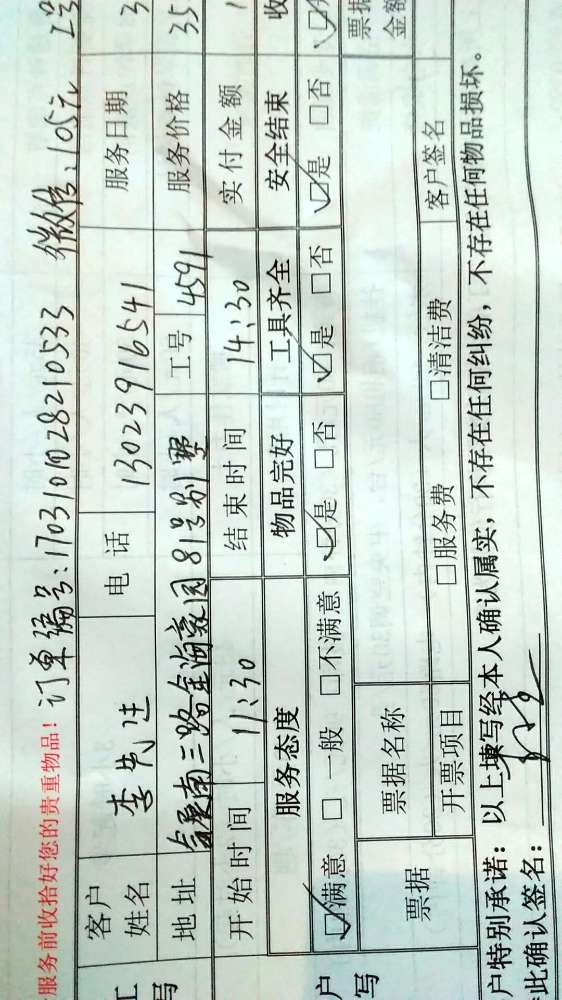 服务前收拾好您的贵重物品！ 订单编号：1703101028210533 微信：105元
客户姓名 李先生 电话 13023916541 服务日期 3
地址 南三路金海豪园81号别墅 工号 4591 服务价格 35
开始时间 11:30 结束时间 14:30 实付金额 1
服务态度 物品完好 工具齐全 安全结束 收
☑满意 □一般 □不满意 ☑是 □否 ☑是 □否 ☑是 □否
票据 票据名称 票据金额
开票项目 □服务费 □清洁费 客户签名
户特别承诺：以上填写经本人确认属实，不存在任何纠纷，不存在任何物品损坏。
此确认签名：